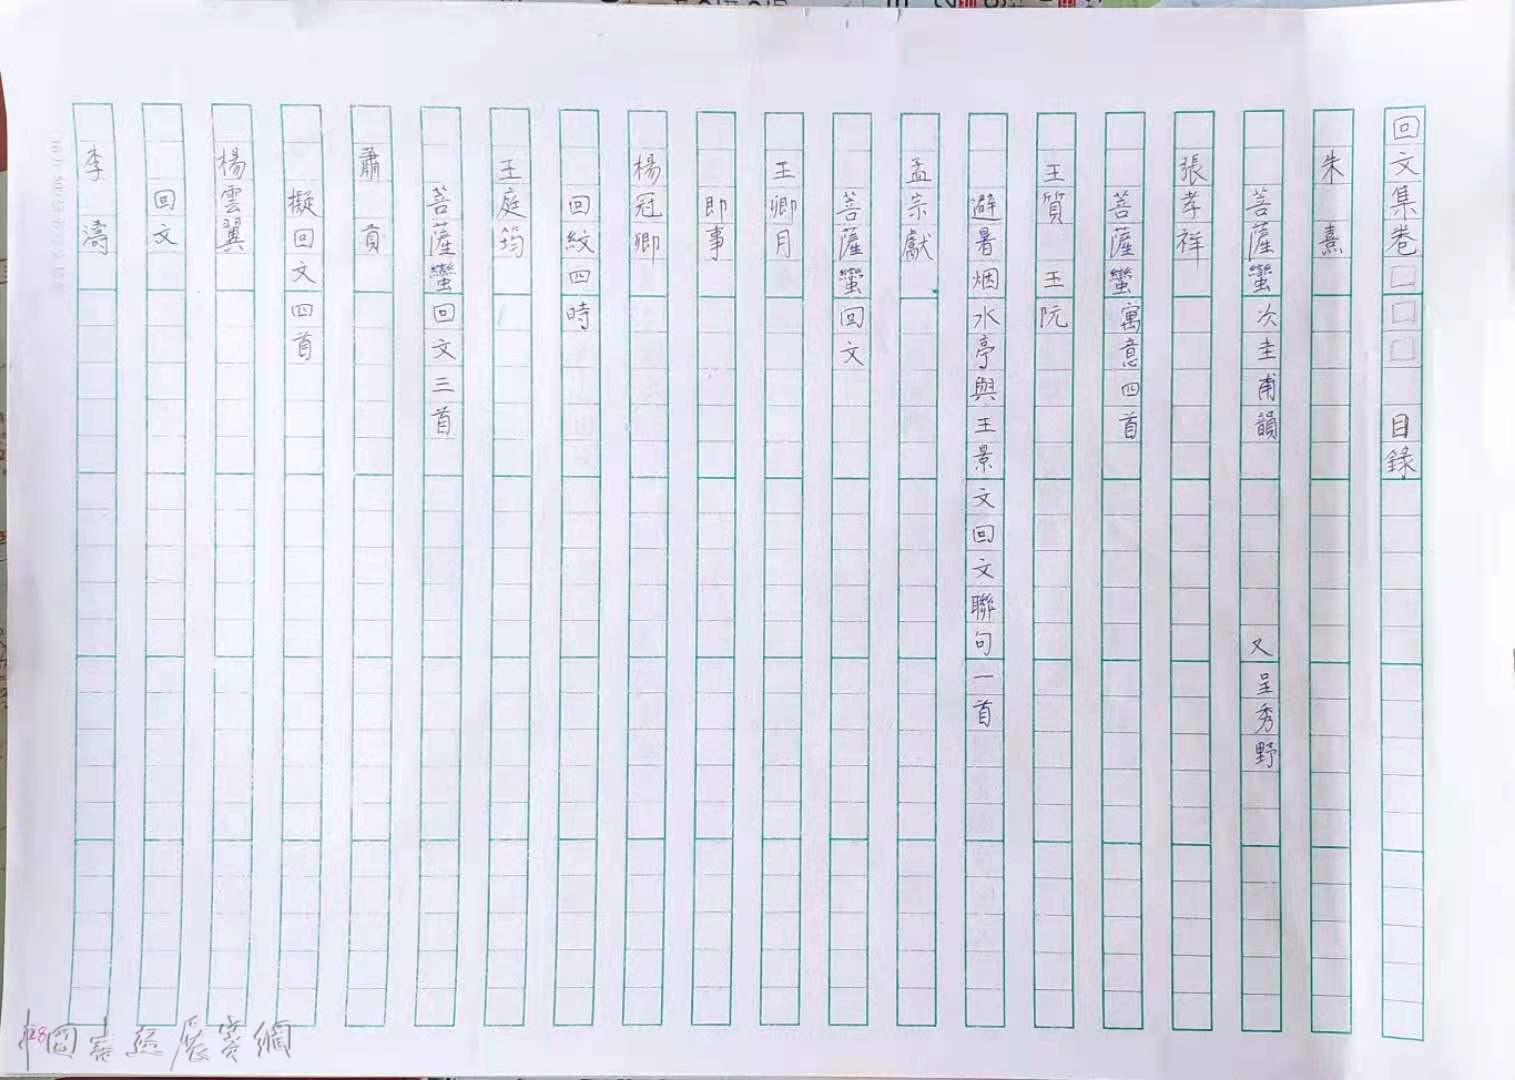 回文集卷□□□　目錄
朱　熹
菩薩蠻次圭甫韻　又呈秀野
張孝祥
菩薩蠻寓意四首
王質　王阮
避暑烟水亭與王景文回文聯句一首
孟宗獻
菩薩蠻回文
王卿月
即事
楊冠卿
回紋四時
王庭筠
菩薩蠻回文三首
蕭　貢
擬回文四首
楊雲翼
回文
李　濤
28